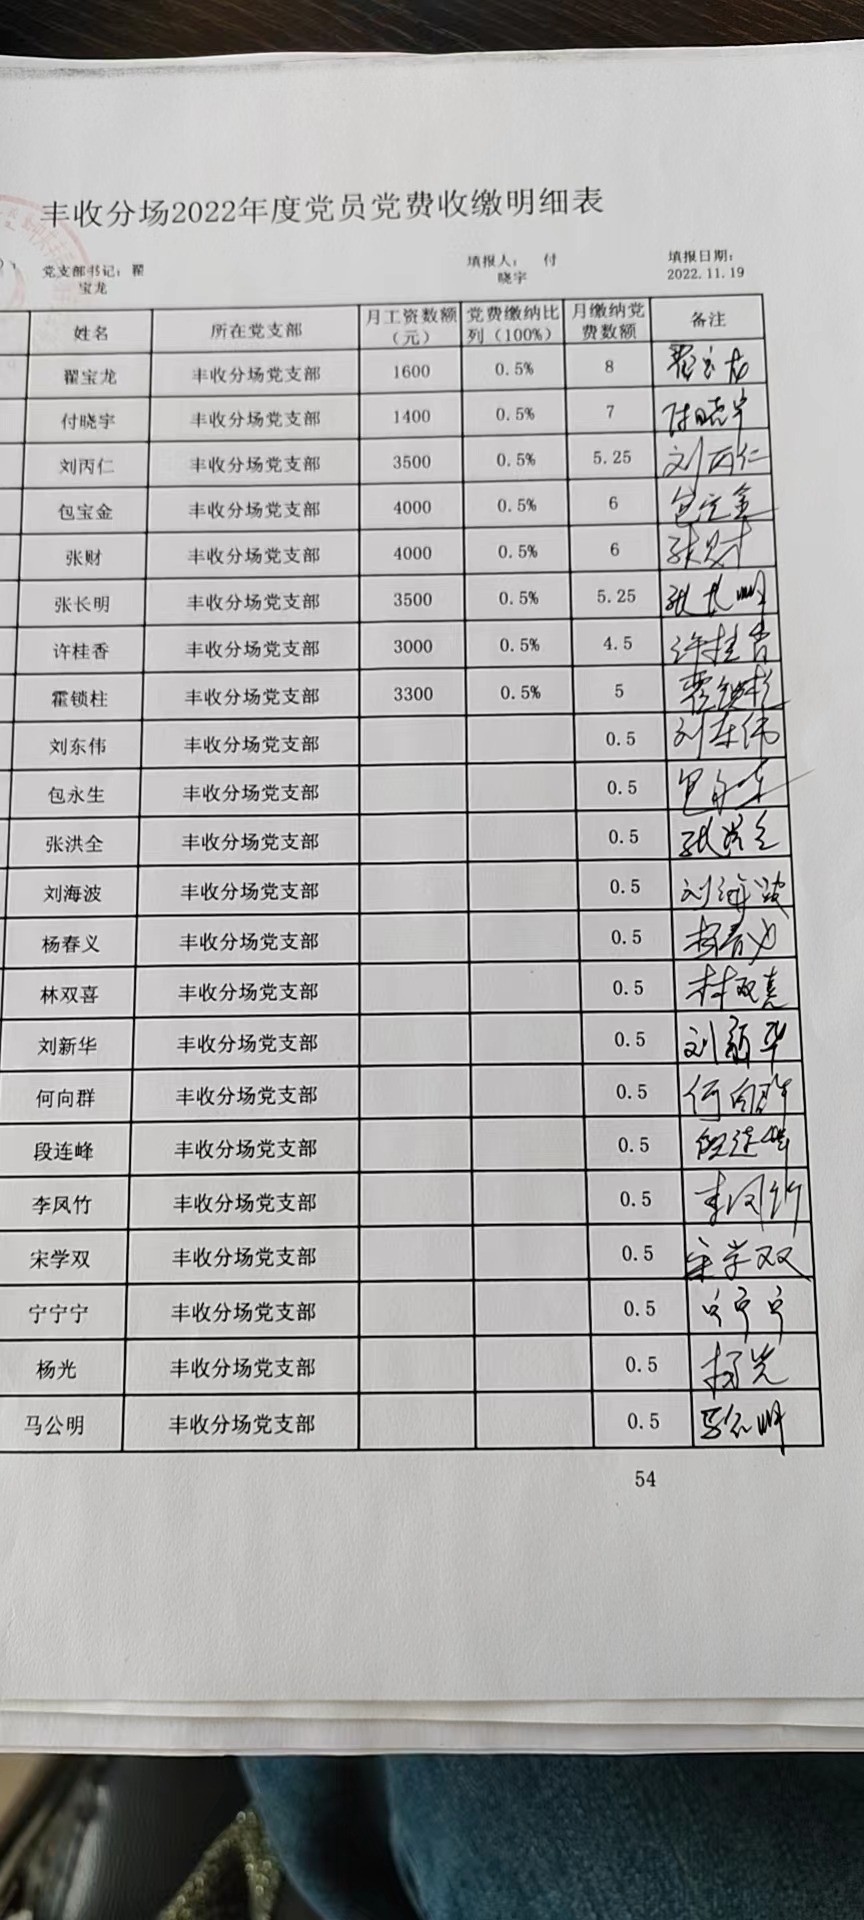 丰收分场2022年度党员党费收缴明细表
党支部书记：翟宝龙 填报人： 付晓宇 填报日期：2022.11.19
姓名 所在党支部 月工资数额（元） 党费缴纳比列（100%） 月缴纳党费数额 备注
翟宝龙 丰收分场党支部 1600 0.5% 8 翟宝龙
付晓宇 丰收分场党支部 1400 0.5% 7 付晓宇
刘丙仁 丰收分场党支部 3500 0.5% 5.25 刘丙仁
包宝金 丰收分场党支部 4000 0.5% 6 包宝金
张财 丰收分场党支部 4000 0.5% 6 张财
张长明 丰收分场党支部 3500 0.5% 5.25 张长明
许桂香 丰收分场党支部 3000 0.5% 4.5 许桂香
霍锁柱 丰收分场党支部 3300 0.5% 5 霍锁柱
刘东伟 丰收分场党支部 0.5 刘东伟
包永生 丰收分场党支部 0.5
张洪全 丰收分场党支部 0.5 张洪全
刘海波 丰收分场党支部 0.5 刘海波
杨春义 丰收分场党支部 0.5 杨春义
林双喜 丰收分场党支部 0.5 林双喜
刘新华 丰收分场党支部 0.5 刘新华
何向群 丰收分场党支部 0.5 何向群
段连峰 丰收分场党支部 0.5 段连峰
李凤竹 丰收分场党支部 0.5 李凤竹
宋学双 丰收分场党支部 0.5 宋学双
宁宁宁 丰收分场党支部 0.5 宁宁宁
杨光 丰收分场党支部 0.5 杨光
马公明 丰收分场党支部 0.5 马公明
54